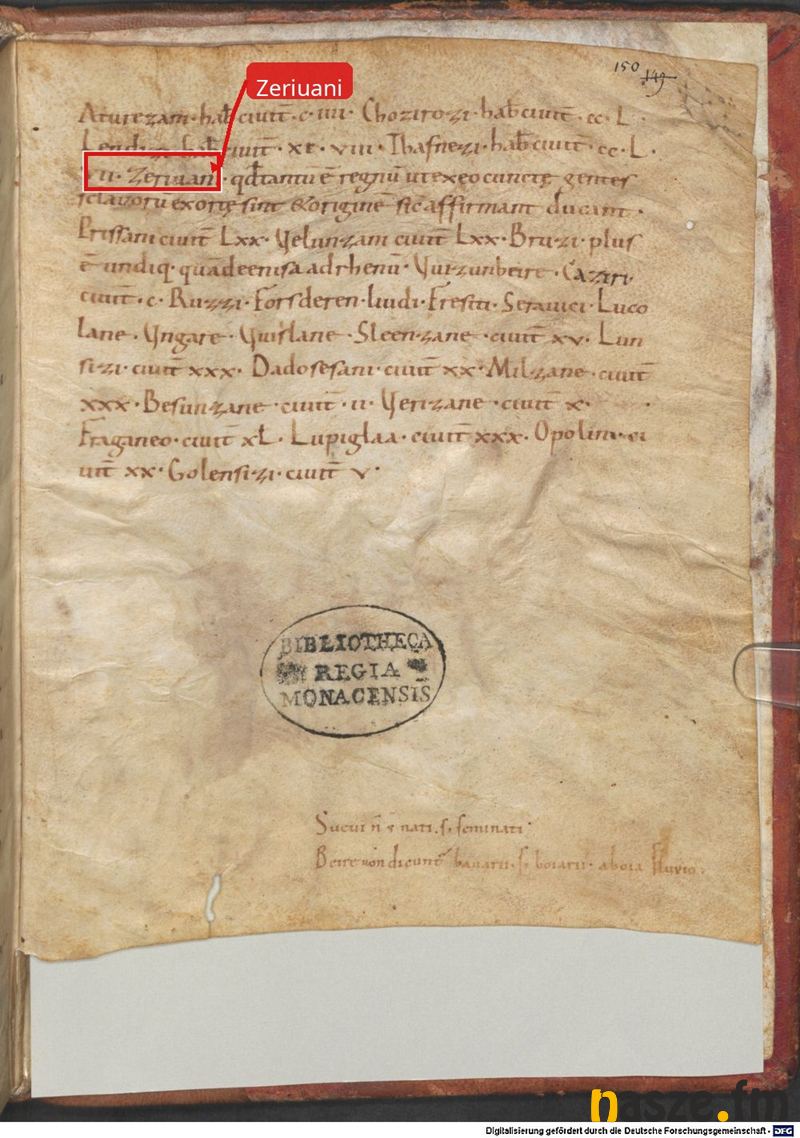 150 149
Zeriuani
Aturezani · hab̄ ciuit̄ · c · iiii · Chozirozi · hab̄ ciuit̄ · cc · L ·
Lendizi · hab̄ ciuit̄ · xc · viii · Thafnezi · hab̄ ciuit̄ · cc · L ·
vii · Zeriuani · qđ tantū ē regnū ut ex eo cunctę gentes
sclauorū exortę sint & originē sic affirmant ducant ·
Prissani ciuit̄ Lxx · Uelunzani ciuit̄ Lxx · Bruzi · plus
ē undiq · quā de enisa ad rhenū · Uuizunbeire · Caziri ·
ciuit̄ · c · Ruzzi · Forsderen · liudi · Fresiti · Serauici · Luco
lane · Ungare · Uuislane · Sleenzane · ciuit̄ xv · Lun
sizi · ciuit̄ xxx · Dadosesani · ciuit̄ xx · Milzane · ciuit̄
xxx · Besunzane · ciuit̄ · ii · Uerizane · ciuit̄ x ·
Fraganeo · ciuit̄ xL · Lupiglaa · ciuit̄ xxx · Opolini · ci
uit̄ xx · Golensizi · ciuit̄ v ·
BIBLIOTHECA
REGIA
MONACENSIS
Sueui n̄ s̄ nati · s · seminati ·
Beire non dicunt bauarii · s · boiarii · a boia fluvio ·
nasze.fm
Digitalisierung gefördert durch die Deutsche Forschungsgemeinschaft - DFG